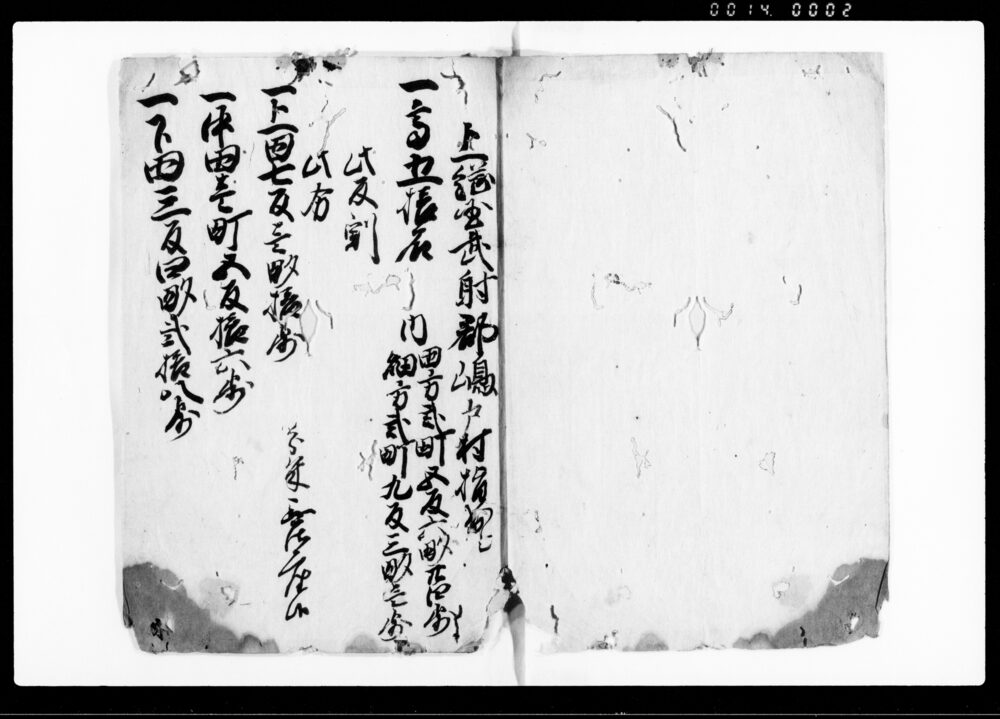 0014 0002
上総国武射郡嶋戸村指出し
一高五拾石
内
田方弐町五反六畝廿四歩
畑方弐町九反三畝壱歩
此反割
此分
一上田七反壱畝拾歩
一中田壱町五反拾六歩
一下田三反四畝弐拾八歩